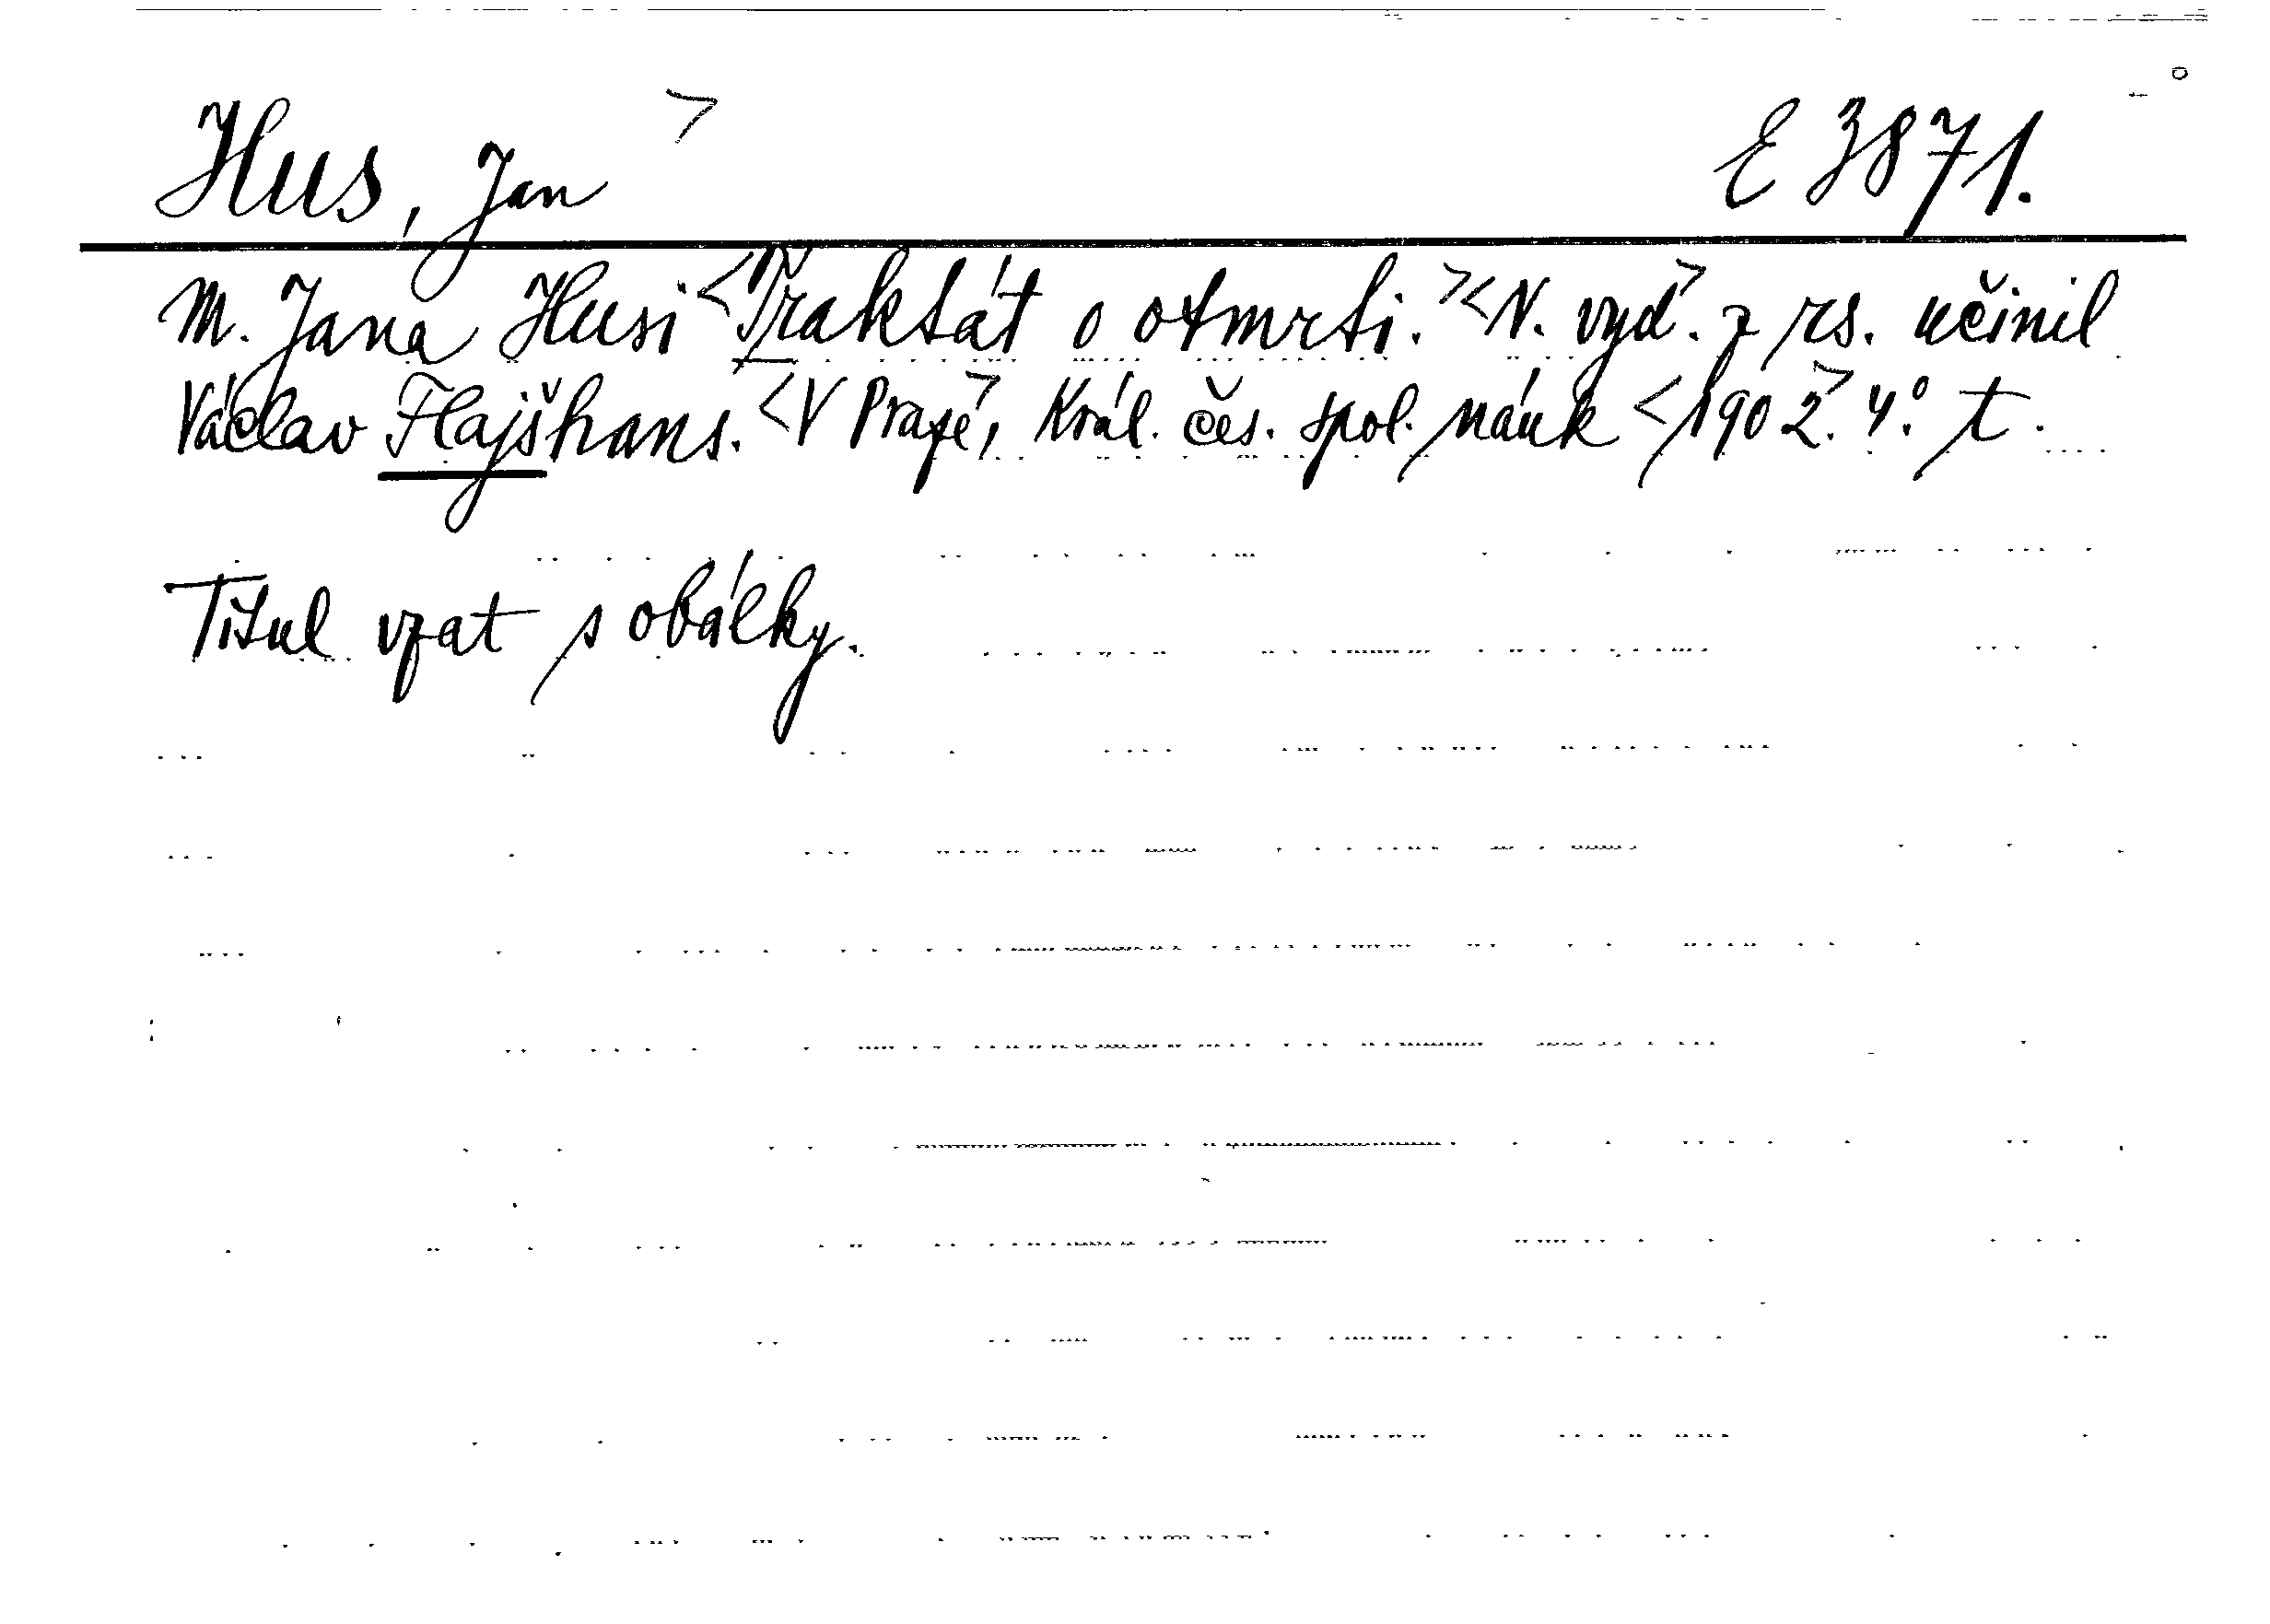 Hus, Jan > E 3871.
M. Jana Husi <Traktát o otmrti.>< N. vyd.> z rs. učinil
Václav Flajšhans. <V Praze>, Král. čes. spol. náuk <1902.> 4°. t.
Titul vzat s obálky.